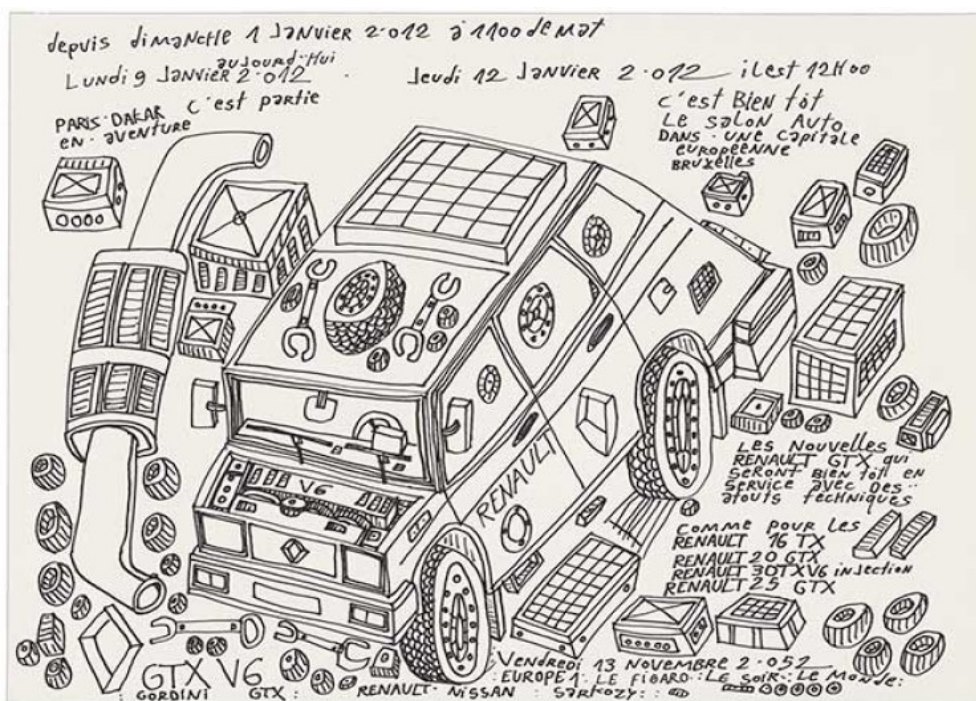 depuis dimanche 1 Janvier 2.012 à 1100 de mat
aujourd'hui
Lundi 9 Janvier 2.012
Jeudi 12 Janvier 2.012 il est 12H00
PARIS-DAKAR C'est partie
en aventure
C'est Bien tôt
Le salon Auto
DANS une capitale
européenne
Bruxelles
V6
RENAULT
Les Nouvelles
RENAULT GTX qui
seront bien tôt en
service avec des
atouts techniques
comme pour les
RENAULT 16 TX
RENAULT 20 GTX
RENAULT 30TXV6 injection
RENAULT 25 GTX
GTX V6
GORDINI GTX : RENAULT. NISSAN : SARKOZY :
: Vendredi 13 Novembre 2.052
: EUROPE 1 : LE FIGARO : LE SOIR : LE MONDE :